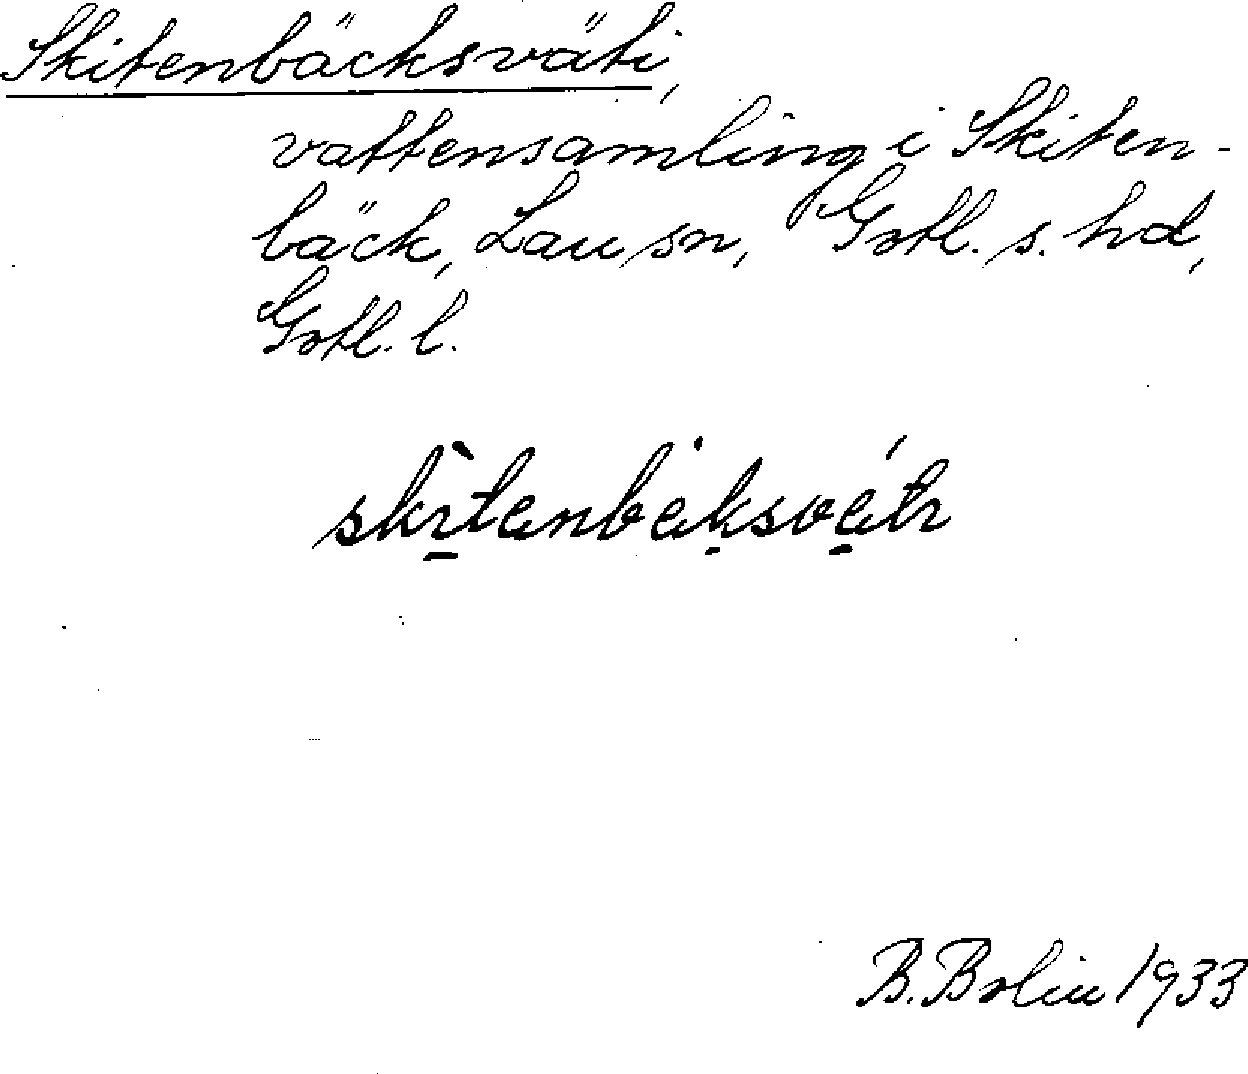 Skitenbäcksväti,
vattensamling i Skiten-
bäck, Lau sn, Gotl. s. hd,
Gotl. l.
B. Bolin 1933